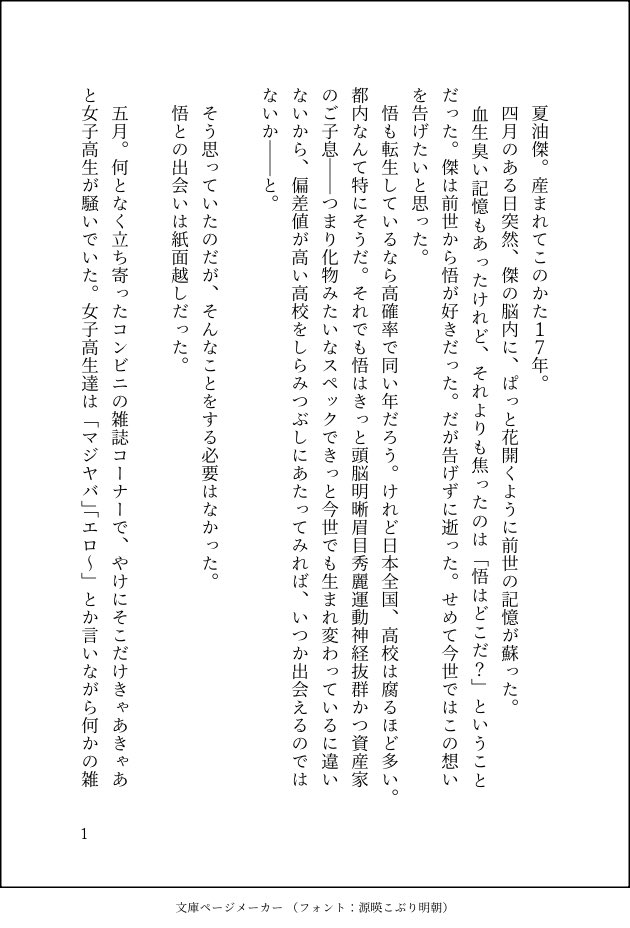 夏油傑。産まれてこのかた17年。
四月のある日突然、傑の脳内に、ぱっと花開くように前世の記憶が蘇った。
血生臭い記憶もあったけれど、それよりも焦ったのは「悟はどこだ？」ということ
だった。傑は前世から悟が好きだった。だが告げずに逝った。せめて今世ではこの想い
を告げたいと思った。
悟も転生しているなら高確率で同い年だろう。けれど日本全国、高校は腐るほど多い。
都内なんて特にそうだ。それでも悟はきっと頭脳明晰眉目秀麗運動神経抜群かつ資産家
のご子息――つまり化物みたいなスペックできっと今世でも生まれ変わっているに違い
ないから、偏差値が高い高校をしらみつぶしにあたってみれば、いつか出会えるのでは
ないか――と。
そう思っていたのだが、そんなことをする必要はなかった。
悟との出会いは紙面越しだった。
五月。何となく立ち寄ったコンビニの雑誌コーナーで、やけにそこだけきゃあきゃあ
と女子高生が騒いでいた。女子高生達は「マジヤバ」「エロ〜」とか言いながら何かの雑
1
文庫ページメーカー（フォント：源暎こぶり明朝）